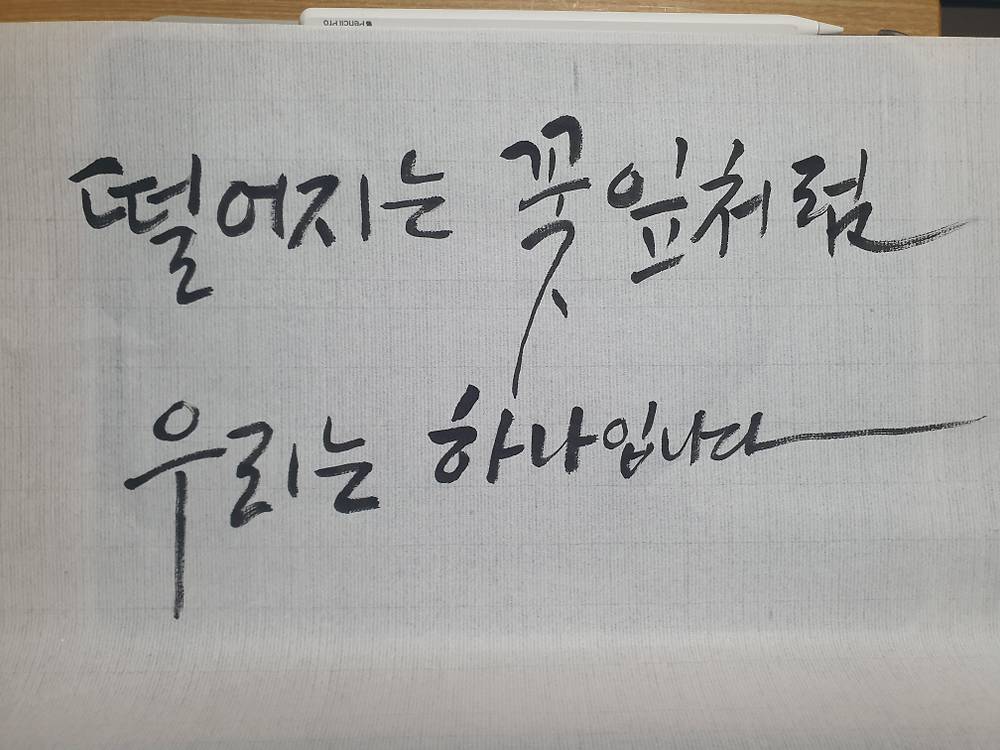 Pencil Pro
떨어지는 꽃잎처럼
우리는 하나입니다